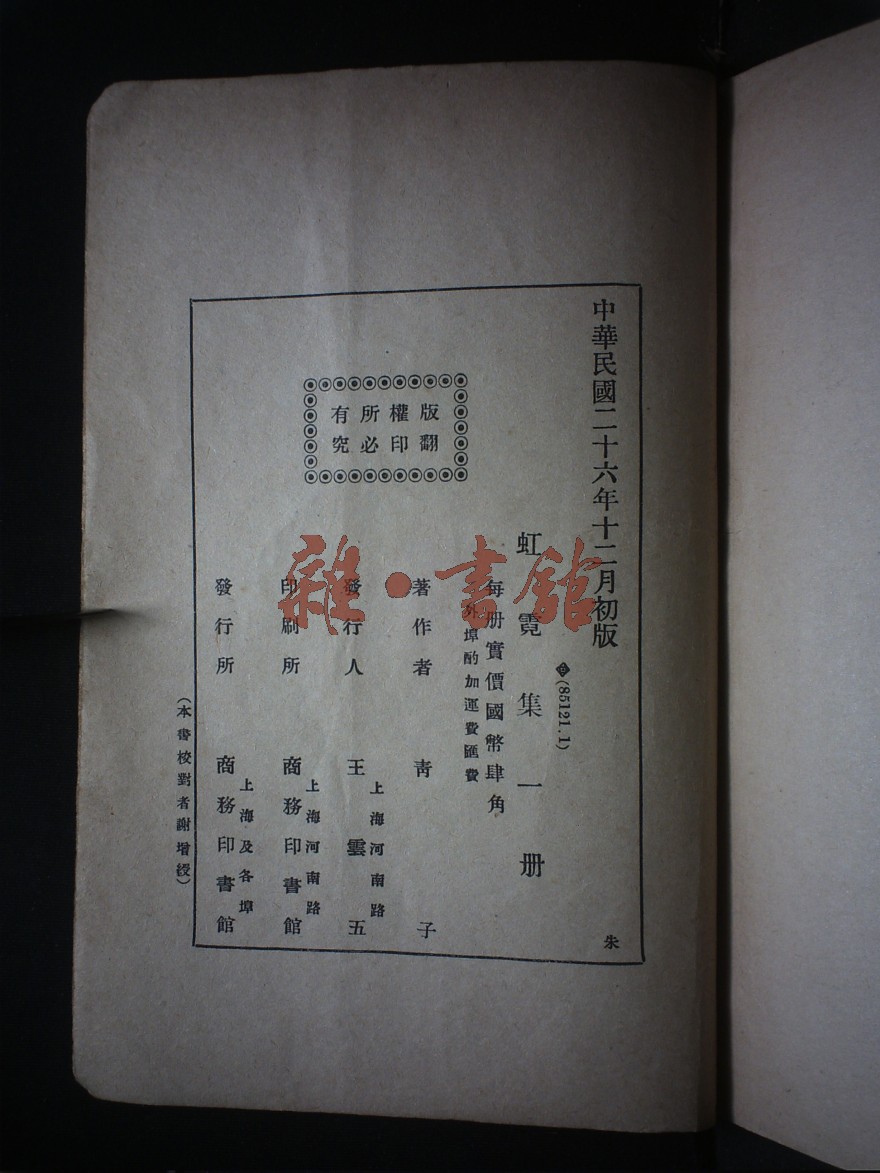 中華民國二十六年十二月初版
(85121.1)
虹霓集一册
每册實價國幣肆角
外埠酌加運費匯費
版權所有
翻印必究
著作者 青子
發行人 王雲五
上海河南路
印刷所 商務印書館
上海河南路
發行所 商務印書館
上海及各埠
(本書校對者謝增綬)
朱
雜·書館